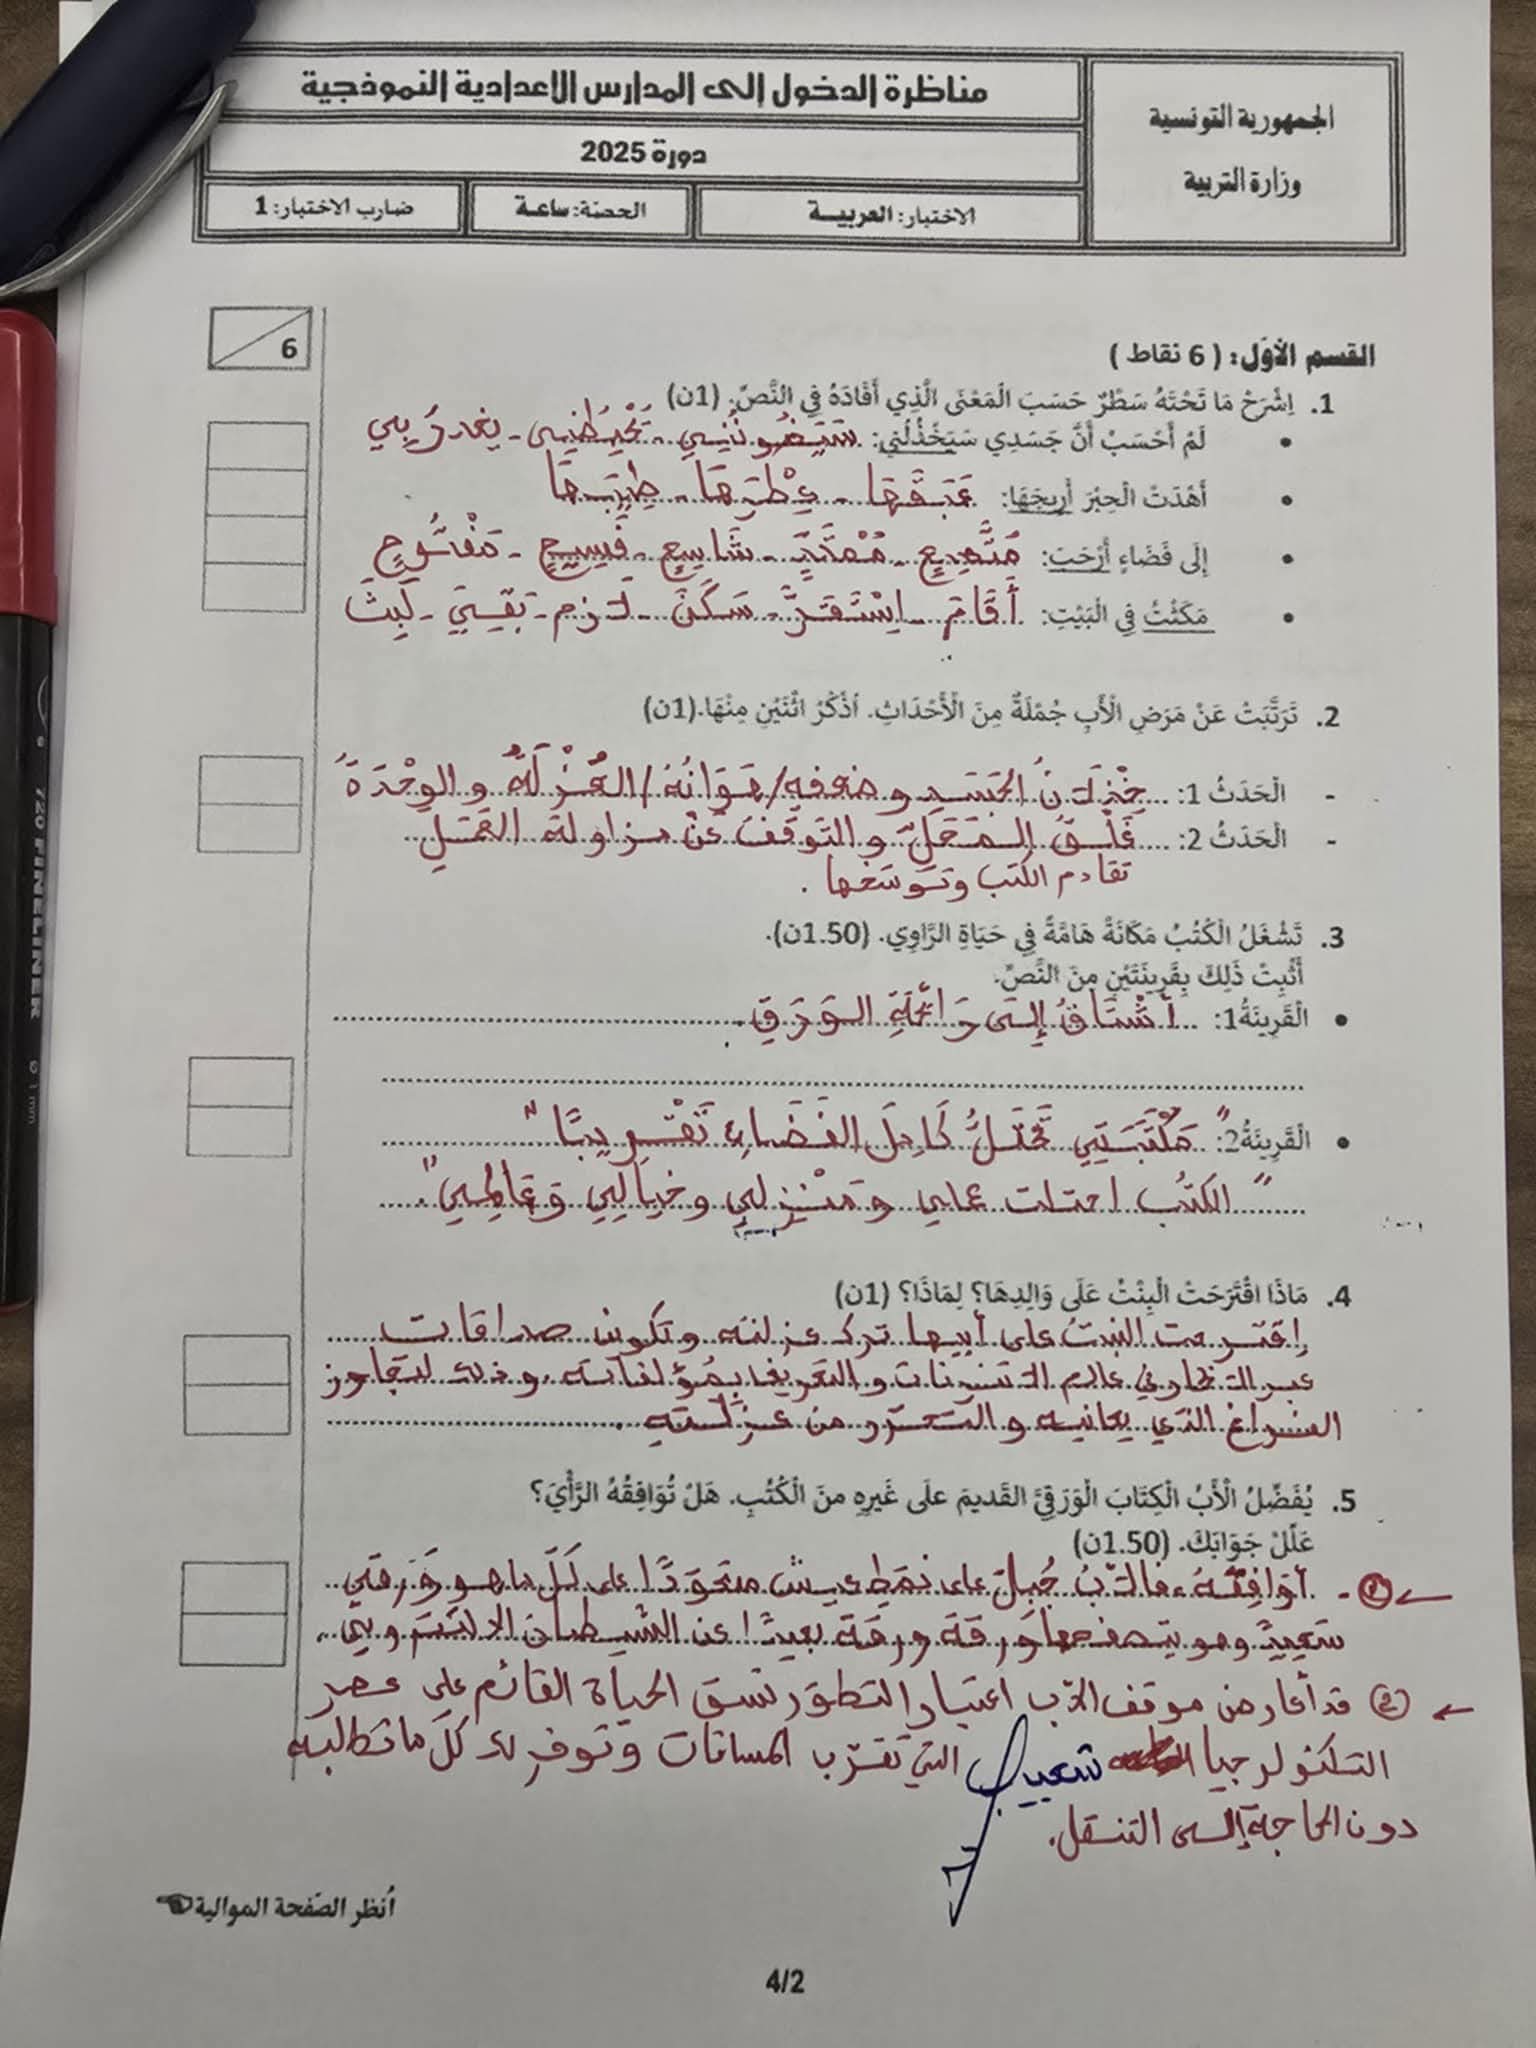 الجمهورية التونسية
وزارة التربية
مناظرة الدخول إلى المدارس الإعدادية النموذجية
دورة 2025
الاختبار: العربية
الحصة: ساعة
ضارب الاختبار: 1
6
القسم الأوّل: ( 6 نقاط )
1. اِشْرَحْ مَا تَحْتَهُ سَطْرٌ حَسَبَ الْمَعْنَى الَّذِي أَفَادَهُ فِي النَّصِّ. (1ن)
• لَمْ أَحْسَبْ أَنَّ جَسَدِي سَيَخْذُلُنِي: سَيَخُونُنِي - يُحْبِطُنِي - يغدر بي
• أَهْدَتْ الْحِبْرَ أَرِيجَهَا: عَبَقَهَا - عِطْرَهَا - طِيبَهَا
• إِلَى فَضَاءٍ أَرْحَبَ: مُتَّسِعٍ - مُمْتَدٍّ - شَاسِعٍ - فَسِيحٍ - مَفْتُوحٍ
• مَكَثْتُ فِي الْبَيْتِ: أَقَامَ - اِسْتَقَرَّ - سَكَنَ - لازم - بَقِيَ - لَبِثَ
2. تَرَتَّبَتْ عَنْ مَرَضِ الْأَبِ جُمْلَةٌ مِنَ الْأَحْدَاثِ. اُذْكُرْ اثْنَيْنِ مِنْهَا.(1ن)
- الْحَدَثُ 1: خِذْلَانُ الجَسَدِ وضعفه/هَوَانُهُ/العُزْلَةُ والوِحْدَةُ
- الْحَدَثُ 2: غَلْقُ المَحَلِّ والتوقّف عَنْ مزاولة العَمَلِ
تقادم الكتب وتوسّخها.
3. تَشْغَلُ الْكُتُبُ مَكَانَةً هَامَّةً فِي حَيَاةِ الرَّاوِي. (1.50ن).
أَثْبِتْ ذَلِكَ بِقَرِينَتَيْنِ مِنَ النَّصِّ.
• الْقَرِينَةُ1: أَشْتَاقُ إِلَى رَائِحَةِ الوَرَقِ.
• الْقَرِينَةُ2: "مَكْتَبَتِي تَحْتَلُّ كَامِلَ الفَضَاءِ تَقْرِيبًا"
"الكتُب احتلت عملي ومَنْزِلِي وخيالِي وعَالَمِي".
4. مَاذَا اقْتَرَحَتْ الْبِنْتُ عَلَى وَالِدِهَا؟ لِمَاذَا؟ (1ن)
إقترحت البنتُ على أبيها ترك عزلته وتكوين صداقات
عبر الابحار في عالم الانترنات والتعريف بمُؤلفاته وذلك لتجاوز
الفراغ الذي يعانيه والتحرّر من عزلته.
5. يُفَضِّلُ الْأَبُ الْكِتَابَ الْوَرَقِيَّ القَدِيمَ عَلَى غَيْرِهِ مِنَ الْكُتُبِ. هَلْ تُوَافِقُهُ الرَّأْيَ؟
عَلِّلْ جَوَابَكَ. (1.50ن)
① - أوافِقُهُ، فالأبُ جُبِلَ على نَمَطِ عيش متعوّدًا على كلّ ما هو وَرَقي
سَعِيدٌ وهو يتصفحها وَرقة ورقة بعيدًا عن
② قد أعارض موقف الأب اعتبار التطوّر نسق الحياة القائم على عصر
التكنولوجيا التي تقرّب المسافات وتوفر لك كلّ ما تطلبه
دون الحاجة إلى التنقل.
أنظر الصفحة الموالية
4/2